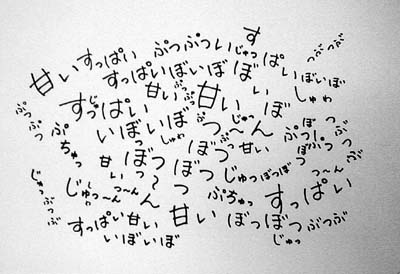 す
すっぱい ぷつぷつ い じゅっ ぱ つぶつぶ
甘い すっぱいぼいぼぼ いぼいぼ
甘い ぷつ 甘い い しゅわ
すっぱい じゅっ ぼ
ぷつぷつ いぼいぼ ぷつ つ〜ん じゅ〜
ぷちゅっ しゅわ ぼつ ぷ 甘い ぷつ
甘い ぼつ ぼつ じゅっ ぼつぼつ つ〜ん
じゅっ じゅっ つ〜ん つ〜ん ぷちゅっ すっぱい
つぶつぶ
すっぱい 甘い 甘い ぼつぼつ ぶつぶつ
いぼいぼ じゅっ